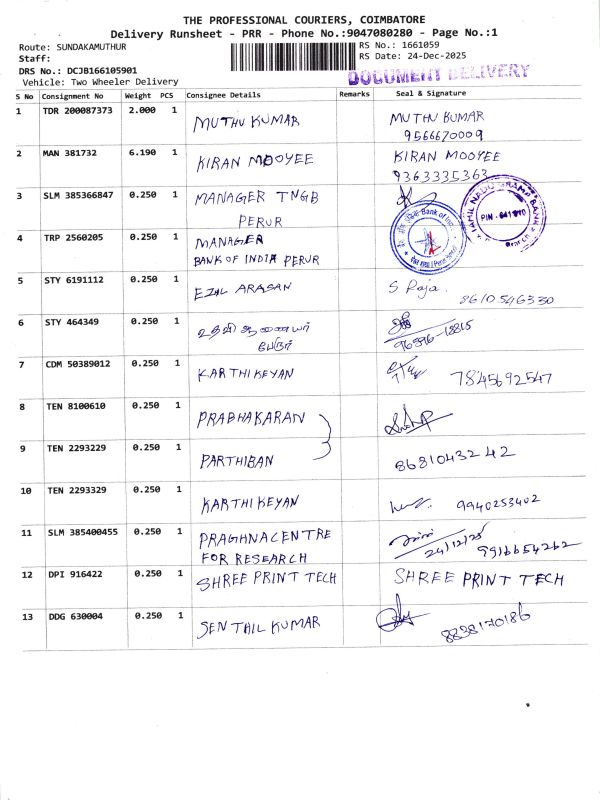 THE PROFESSIONAL COURIERS, COIMBATORE
Delivery Runsheet - PRR - Phone No.:9047080280 - Page No.:1
Route: SUNDAKAMUTHUR RS No.: 1661059
Staff: RS Date: 24-Dec-2025
DRS No.: DCJB166105901 DOCUMENT DELIVERY
Vehicle: Two Wheeler Delivery
S No Consignment No Weight PCS Consignee Details Remarks Seal & Signature
1 TDR 200087373 2.000 1 MUTHU KUMAR MUTHU KUMAR
9566670009
2 MAN 381732 6.190 1 KIRAN MOOYEE KIRAN MOOYEE
9363335363
3 SLM 385366847 0.250 1 MANAGER TNGB
PERUR
TAMIL NADU GRAMA BANK
PIN - 641 010
Branch
4 TRP 2560205 0.250 1 MANAGER
BANK OF INDIA PERUR
Bank of India
5 STY 6191112 0.250 1 EZHL ARASAN S Raja. 8610546330
6 STY 464349 0.250 1 உதவி ஆணையர்
பேரூர்
96596-18815
7 CDM 50389012 0.250 1 KARTHIKEYAN 7845692547
8 TEN 8100610 0.250 1 PRABHAKARAN
9 TEN 2293229 0.250 1 PARTHIBAN 8681043242
10 TEN 2293329 0.250 1 KARTHIKEYAN 9940253402
11 SLM 385400455 0.250 1 PRAGHNA CENTRE
FOR RESEARCH
24/12/25 9916654262
12 DPI 916422 0.250 1 SHREE PRINT TECH SHREE PRINT TECH
13 DDG 630004 0.250 1 SENTHIL KUMAR 8838170186